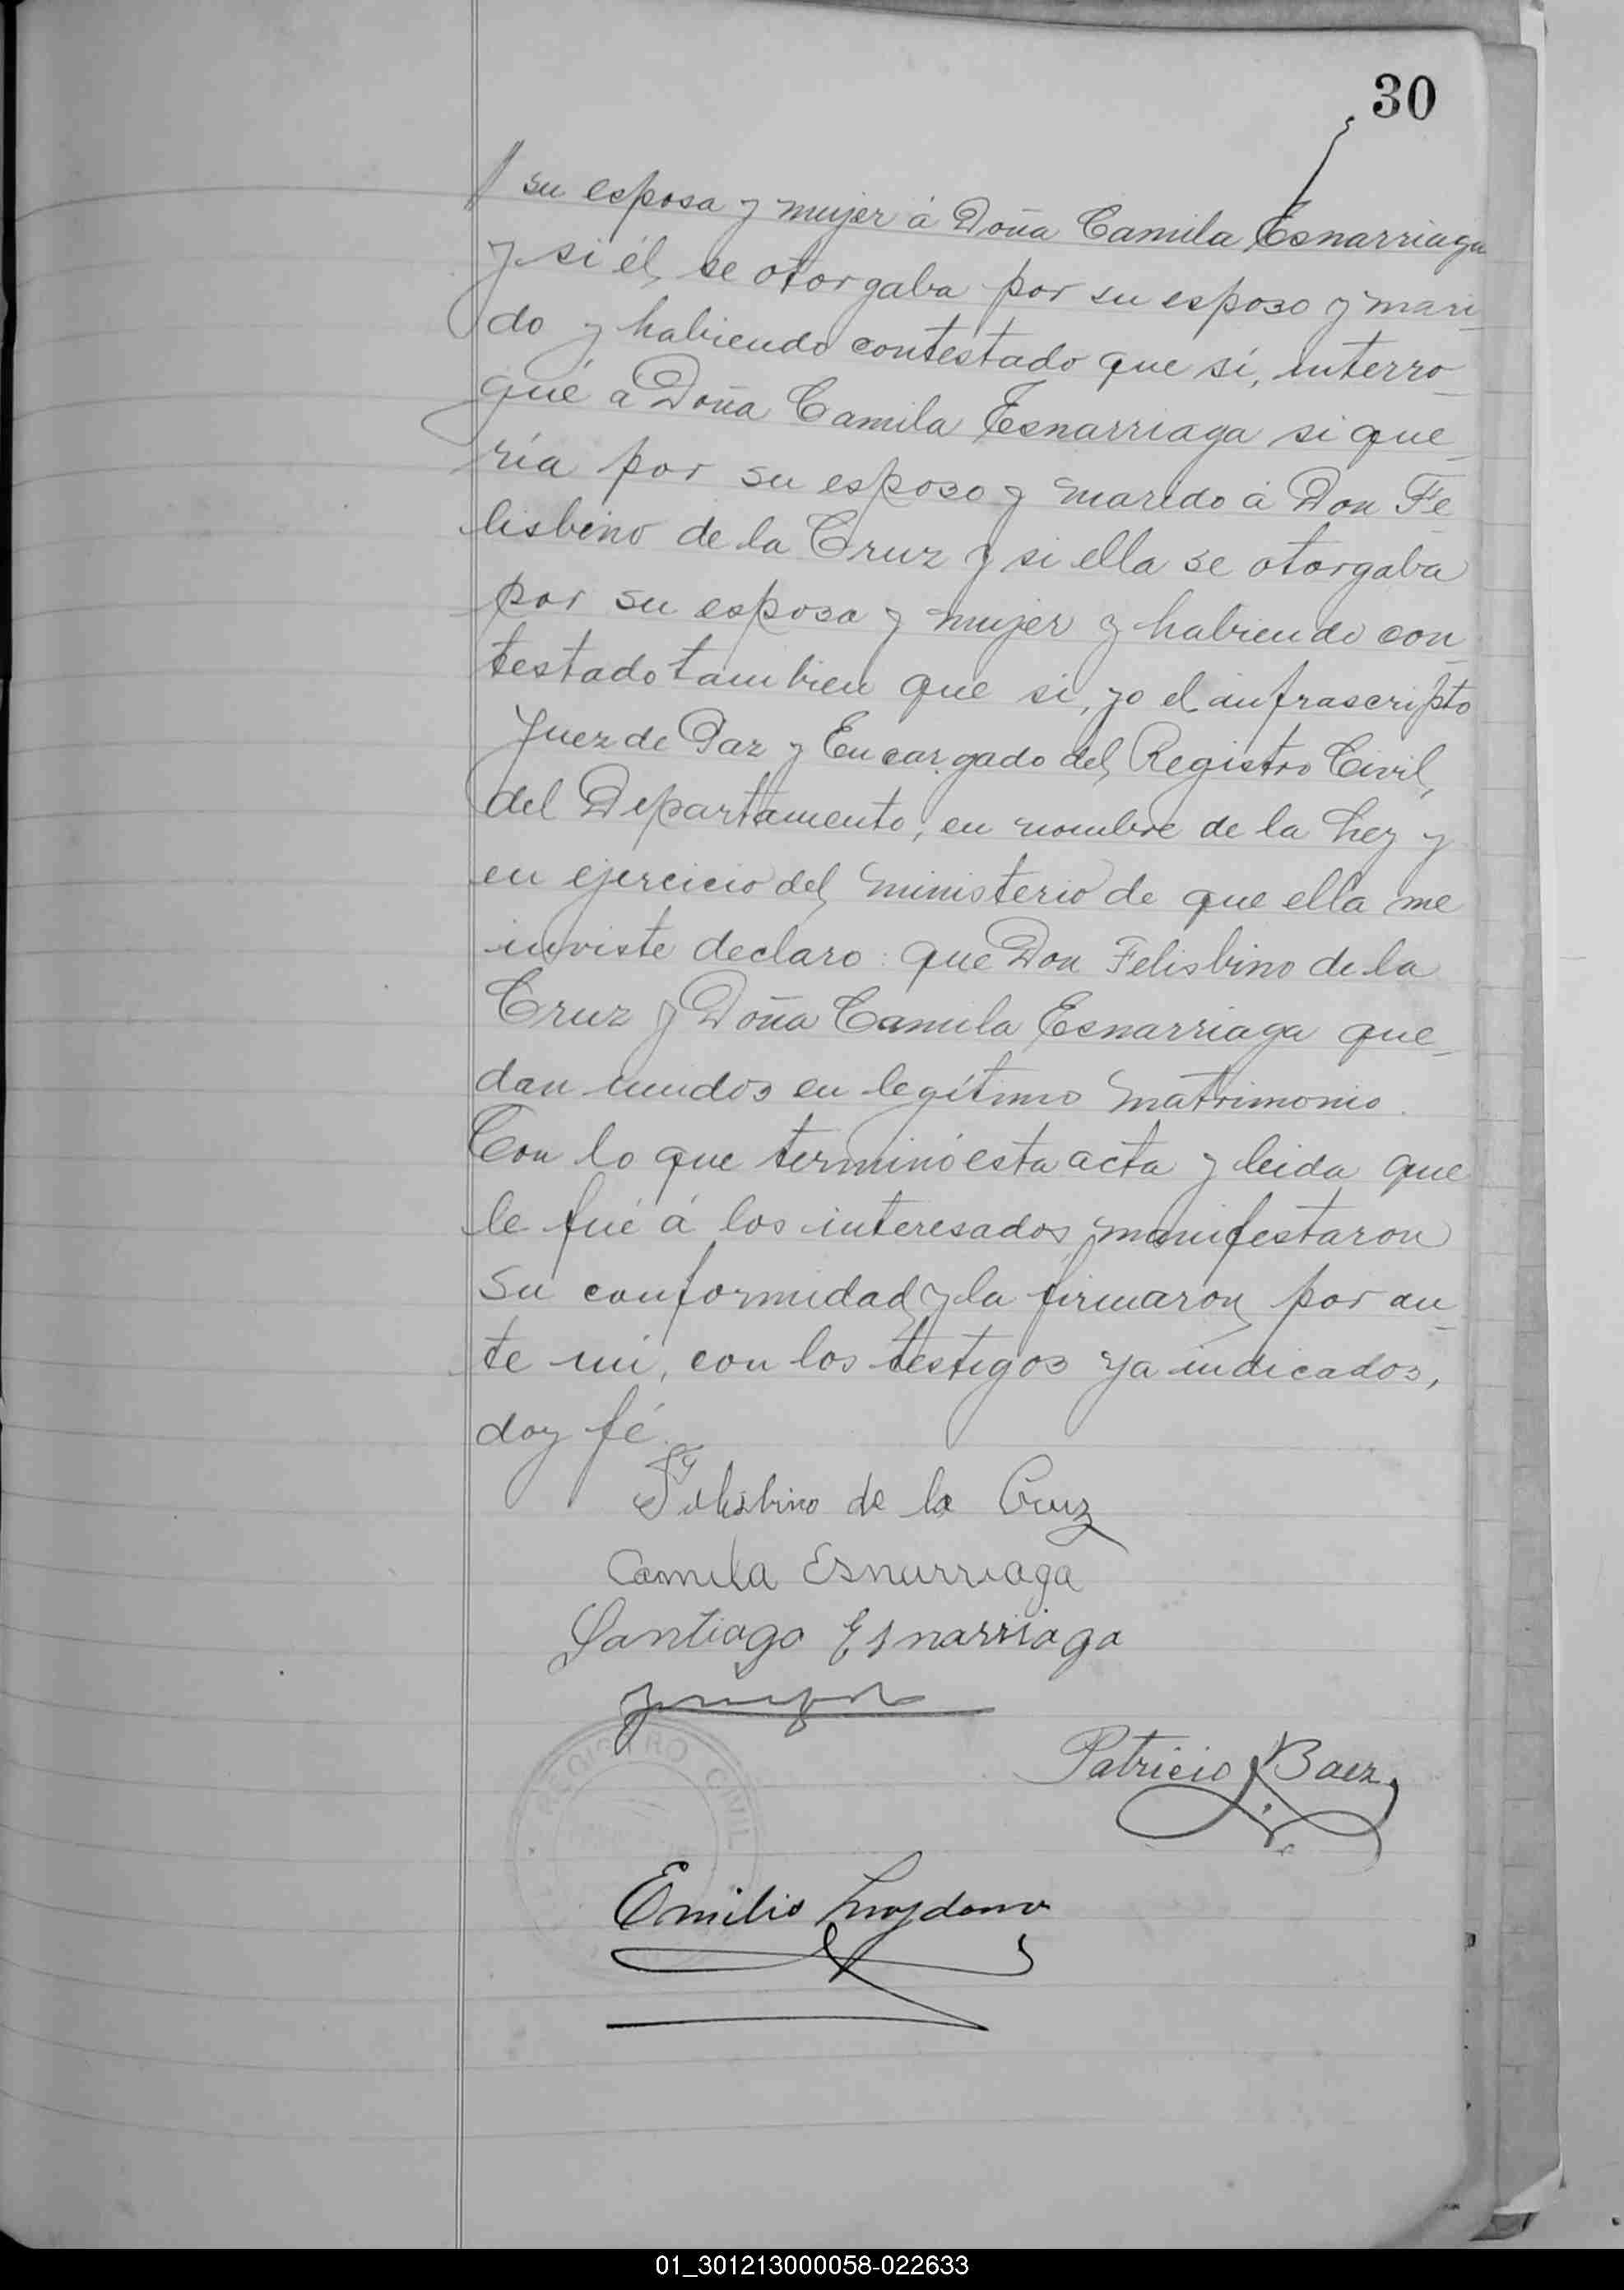 30
su esposa y mujer á Doña Camila Esnarriaga
y si él se otorgaba por su esposo y mari-
do y habiendo contestado que sí, interro-
gué a Doña Camila Esnarriaga si que-
ría por su esposo y marido á Don Fe-
lisbino de la Cruz y si ella se otorgaba
por su esposa y mujer y habiendo con-
testado tambien que si, yo el infrascripto
Juez de Paz y Encargado del Registro Civil,
del Departamento, en nombre de la Ley y
en ejercicio del ministerio de que ella me
inviste declaro: que Don Felisbino de la
Cruz y Doña Camila Esnarriaga que-
dan unidos en legítimo matrimonio.
Con lo que terminó esta acta y leida que
le fué á los interesados, manifestaron
su conformidad y la firmaron por an-
te mi, con los testigos ya indicados,
doy fé.
Felisbino de la Cruz
Camila Esnarriaga
Santiago Esnarriaga
Patricio Baez
REGISTRO CIVIL
Emilio
01_301213000058-022633